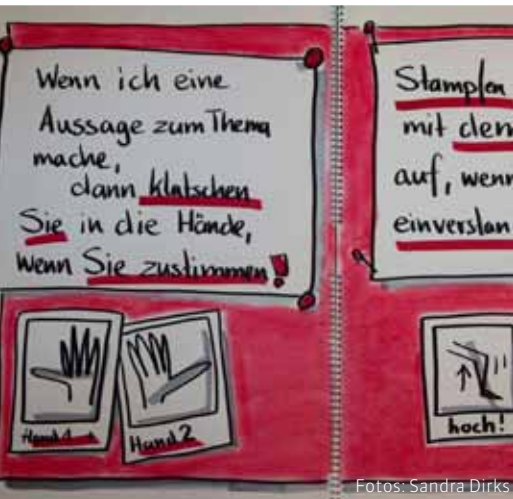 Wenn ich eine
Aussage zum Thema
mache,
dann klatschen
Sie in die Hände,
wenn Sie zustimmen!
Hand 1
Hand 2
Stampfen
mit dem
auf, wenn
einverstan
hoch!
Fotos: Sandra Dirks